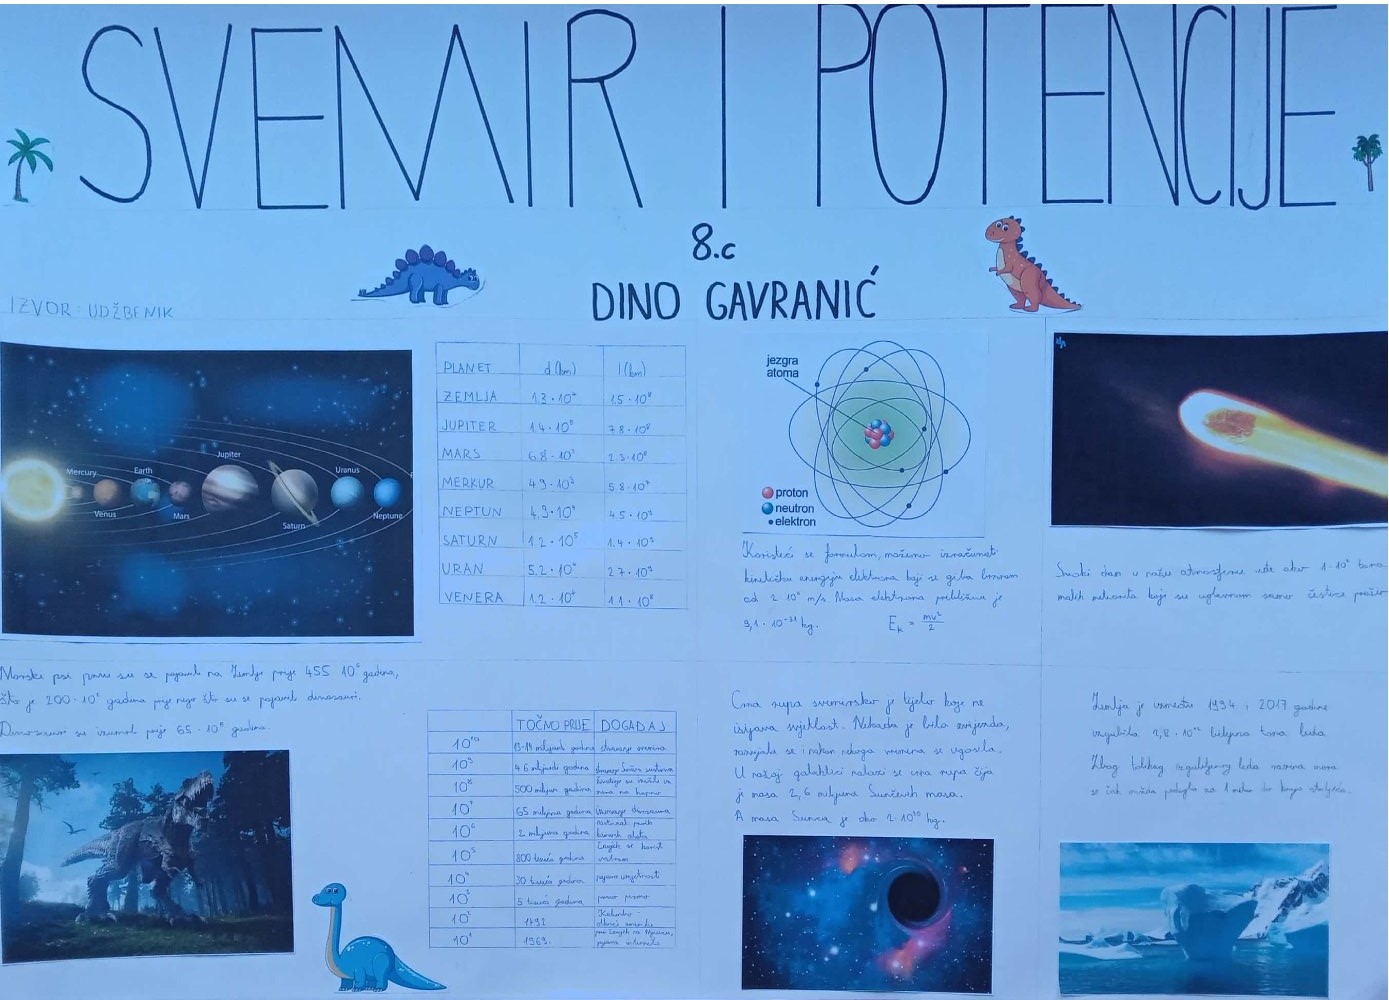 SVEMIR I POTENCIJE
8.c
DINO GAVRANIĆ
IZVOR: UDŽBENIK
Mercury
Venus
Earth
Mars
Jupiter
Saturn
Uranus
Neptune
PLANET d (km) l (km)
ZEMLJA 1.3 · 10⁴ 1.5 · 10⁸
JUPITER 1.4 · 10⁵ 7.8 · 10⁸
MARS 6.8 · 10³ 2.3 · 10⁸
MERKUR 4.9 · 10³ 5.8 · 10⁷
NEPTUN 4.9 · 10⁴ 4.5 · 10⁹
SATURN 1.2 · 10⁵ 1.4 · 10⁹
URAN 5.2 · 10⁴ 2.7 · 10⁹
VENERA 1.2 · 10⁴ 1.1 · 10⁸
jezgra
atoma
proton
neutron
elektron
Koristeći se formulom, možemo izračunati
kinetičku energiju elektrona koji se giba brzinom
od 2 · 10⁶ m/s. Masa elektrona približno je
9,1 · 10⁻³¹ kg. Eₖ = mv²/2
Svaki dan u našu atmosferu uđe oko 1 · 10⁶ tona
malih meteorita koji su uglavnom samo čestice
Morski psi prvi su se pojavili na Zemlji prije 455 · 10⁶ godina,
što je 200 · 10⁶ godina prije nego što su se pojavili dinosauri.
Dinosauri su izumrli prije 65 · 10⁶ godina.
TOČNO PRIJE DOGAĐAJ
10¹⁰ 13-14 milijardi godina stvaranje svemira
10⁹ 4.6 milijardi godina stvaranje Sunčeva sustava
10⁸ 500 milijun godina
10⁷ 65 milijuna godina izumiranje dinosaura
10⁶ 2 milijuna godina
10⁵ 800 tisuća godina Čovjek se koristi vatrom
10⁴ 30 tisuća godina pojava umjetnosti
10³ 5 tisuća godina prvo pismo
10² 1492. Kolumbo
10¹ 1969. prvi čovjek na Mjesecu, pojava interneta
Crna rupa svemirsko je tijelo koje ne
ispušta svjetlost. Nekada je bila zvijezda,
razvijala se i nakon nekoga vremena se ugasila.
U našoj galaktici nalazi se crna rupa čija
je masa 2,6 milijuna Sunčevih masa.
A masa Sunca je oko 2 · 10³⁰ kg.
Zemlja je između 1994. i 2017. godine
izgubila 2,8 · 10¹³ tona leda
Zbog tolikog izgubljenog leda razina mora
se čak možda podigla za 1 metar do kraja stoljeća.